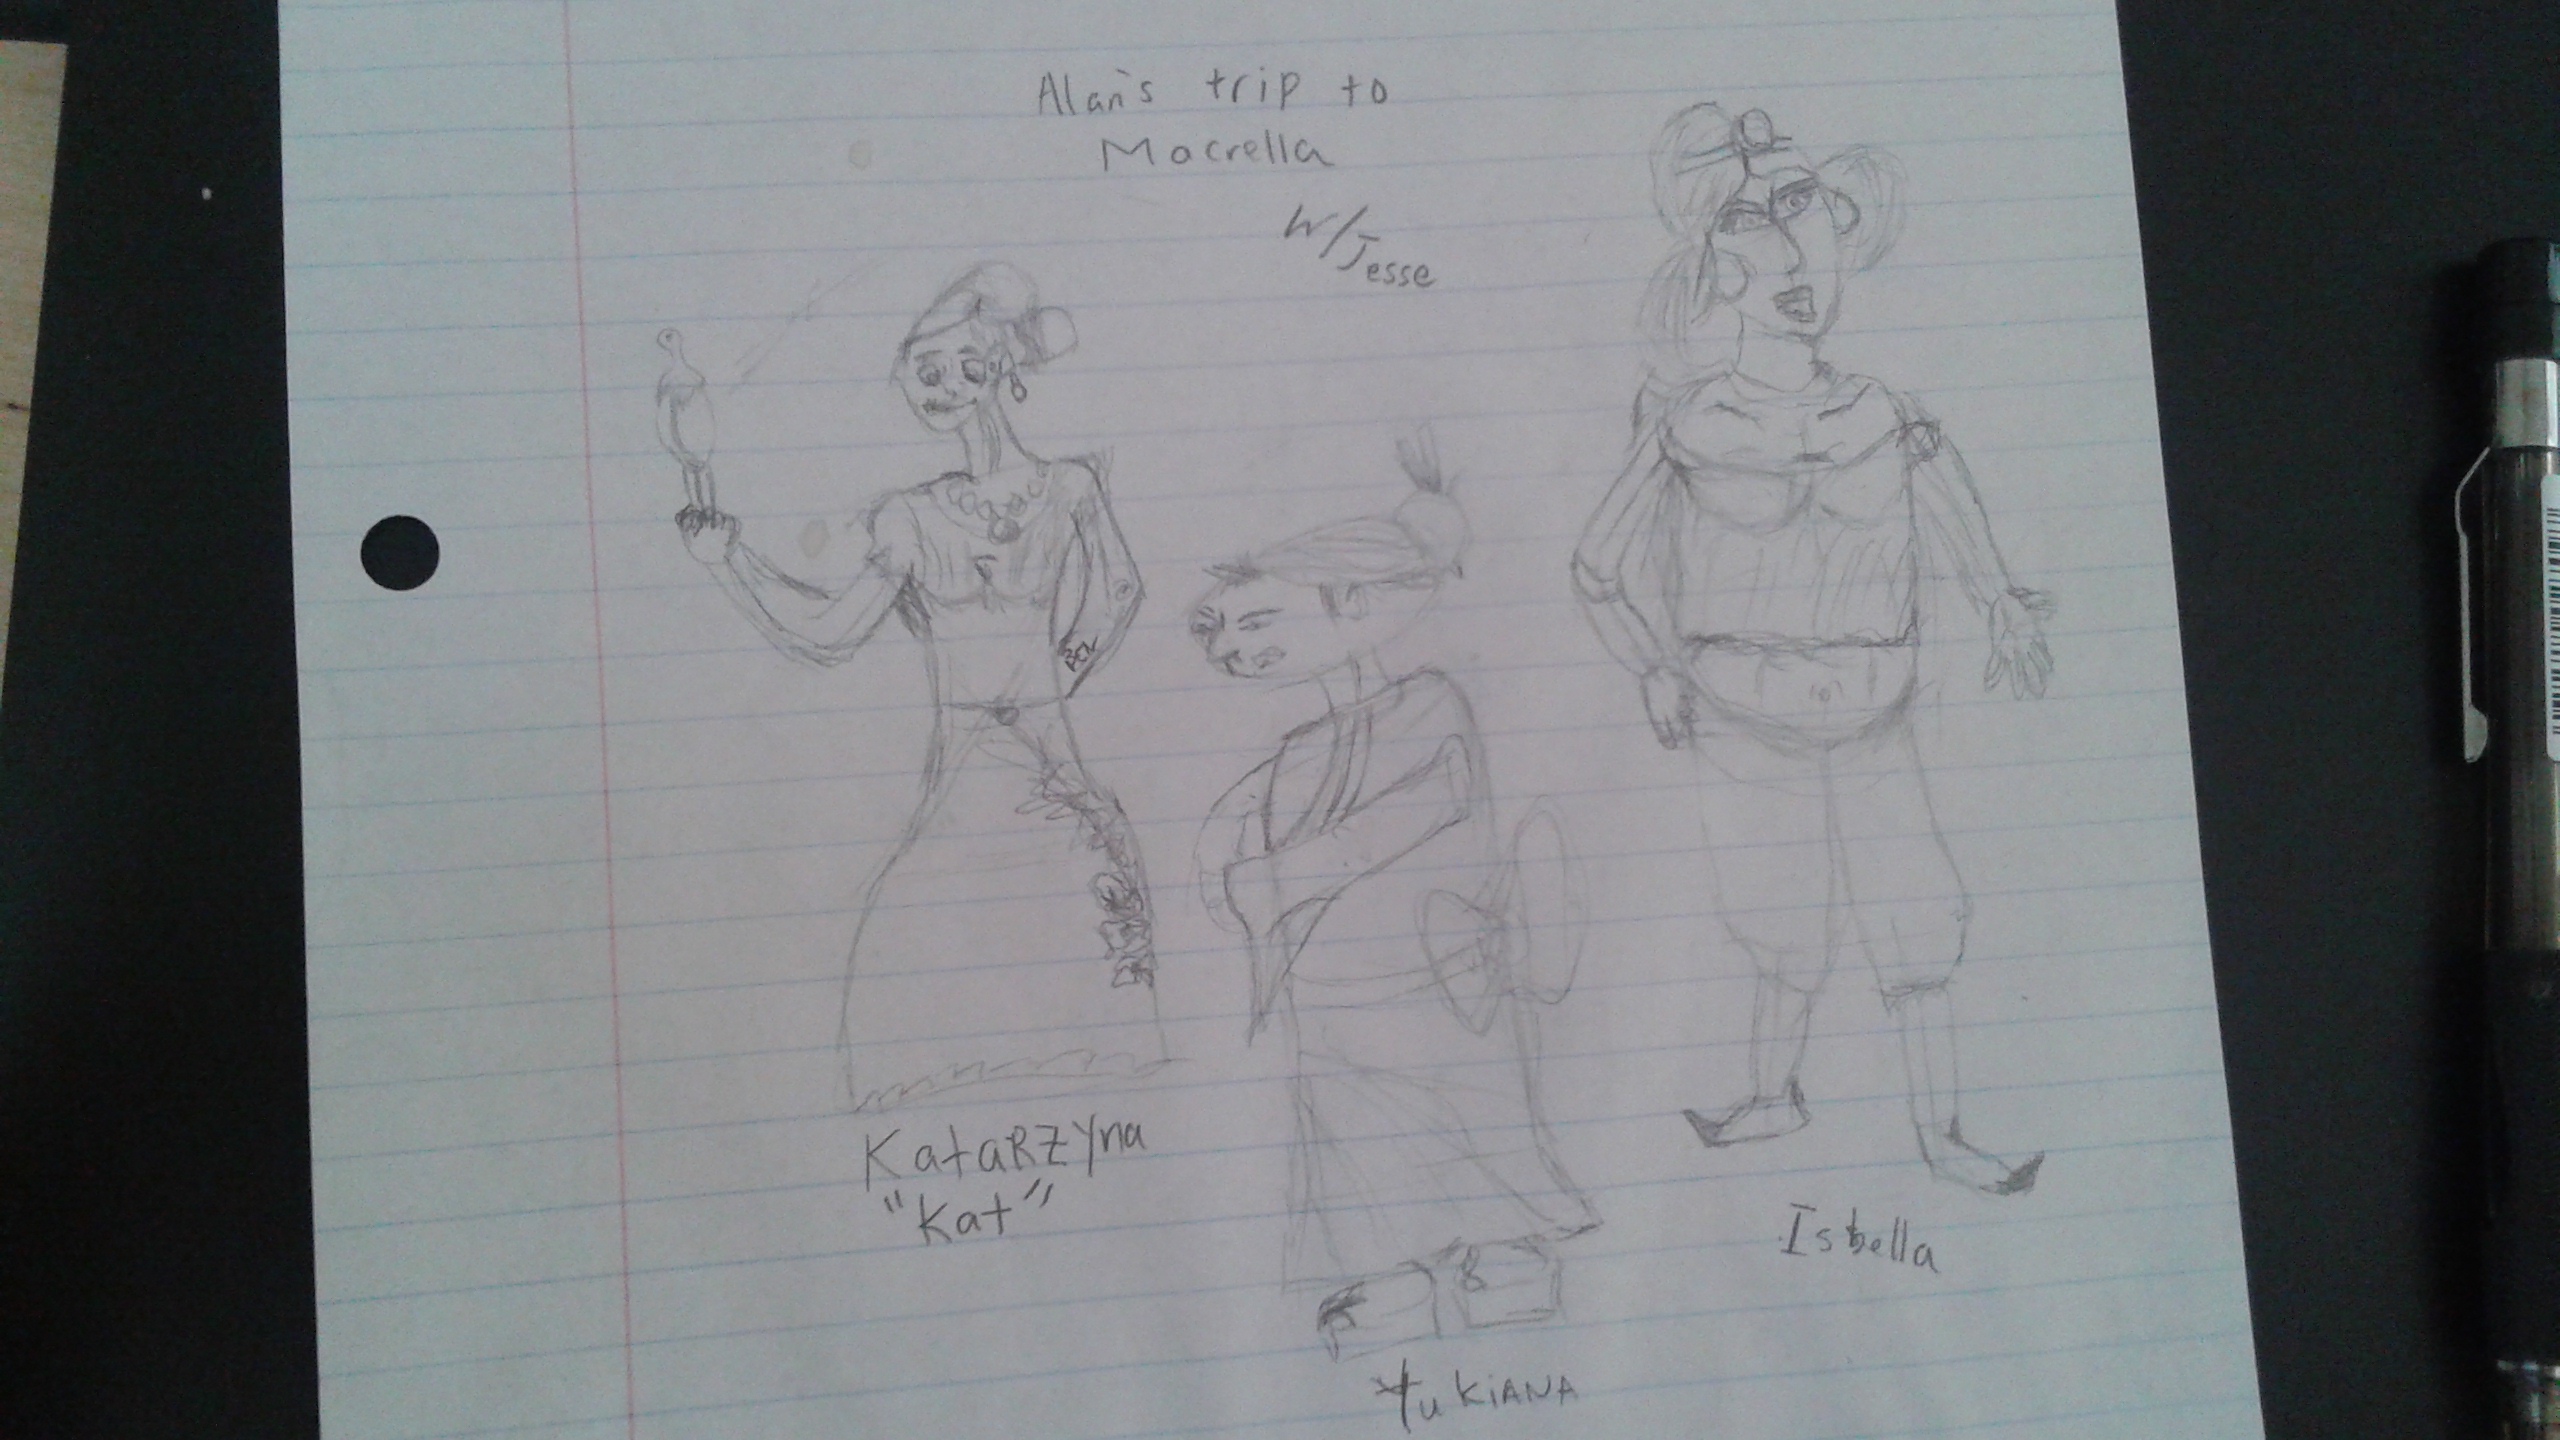 Alan's trip to
Macrella
w/Jesse
Katarzyna
"Kat"
Yukiana
Isbella